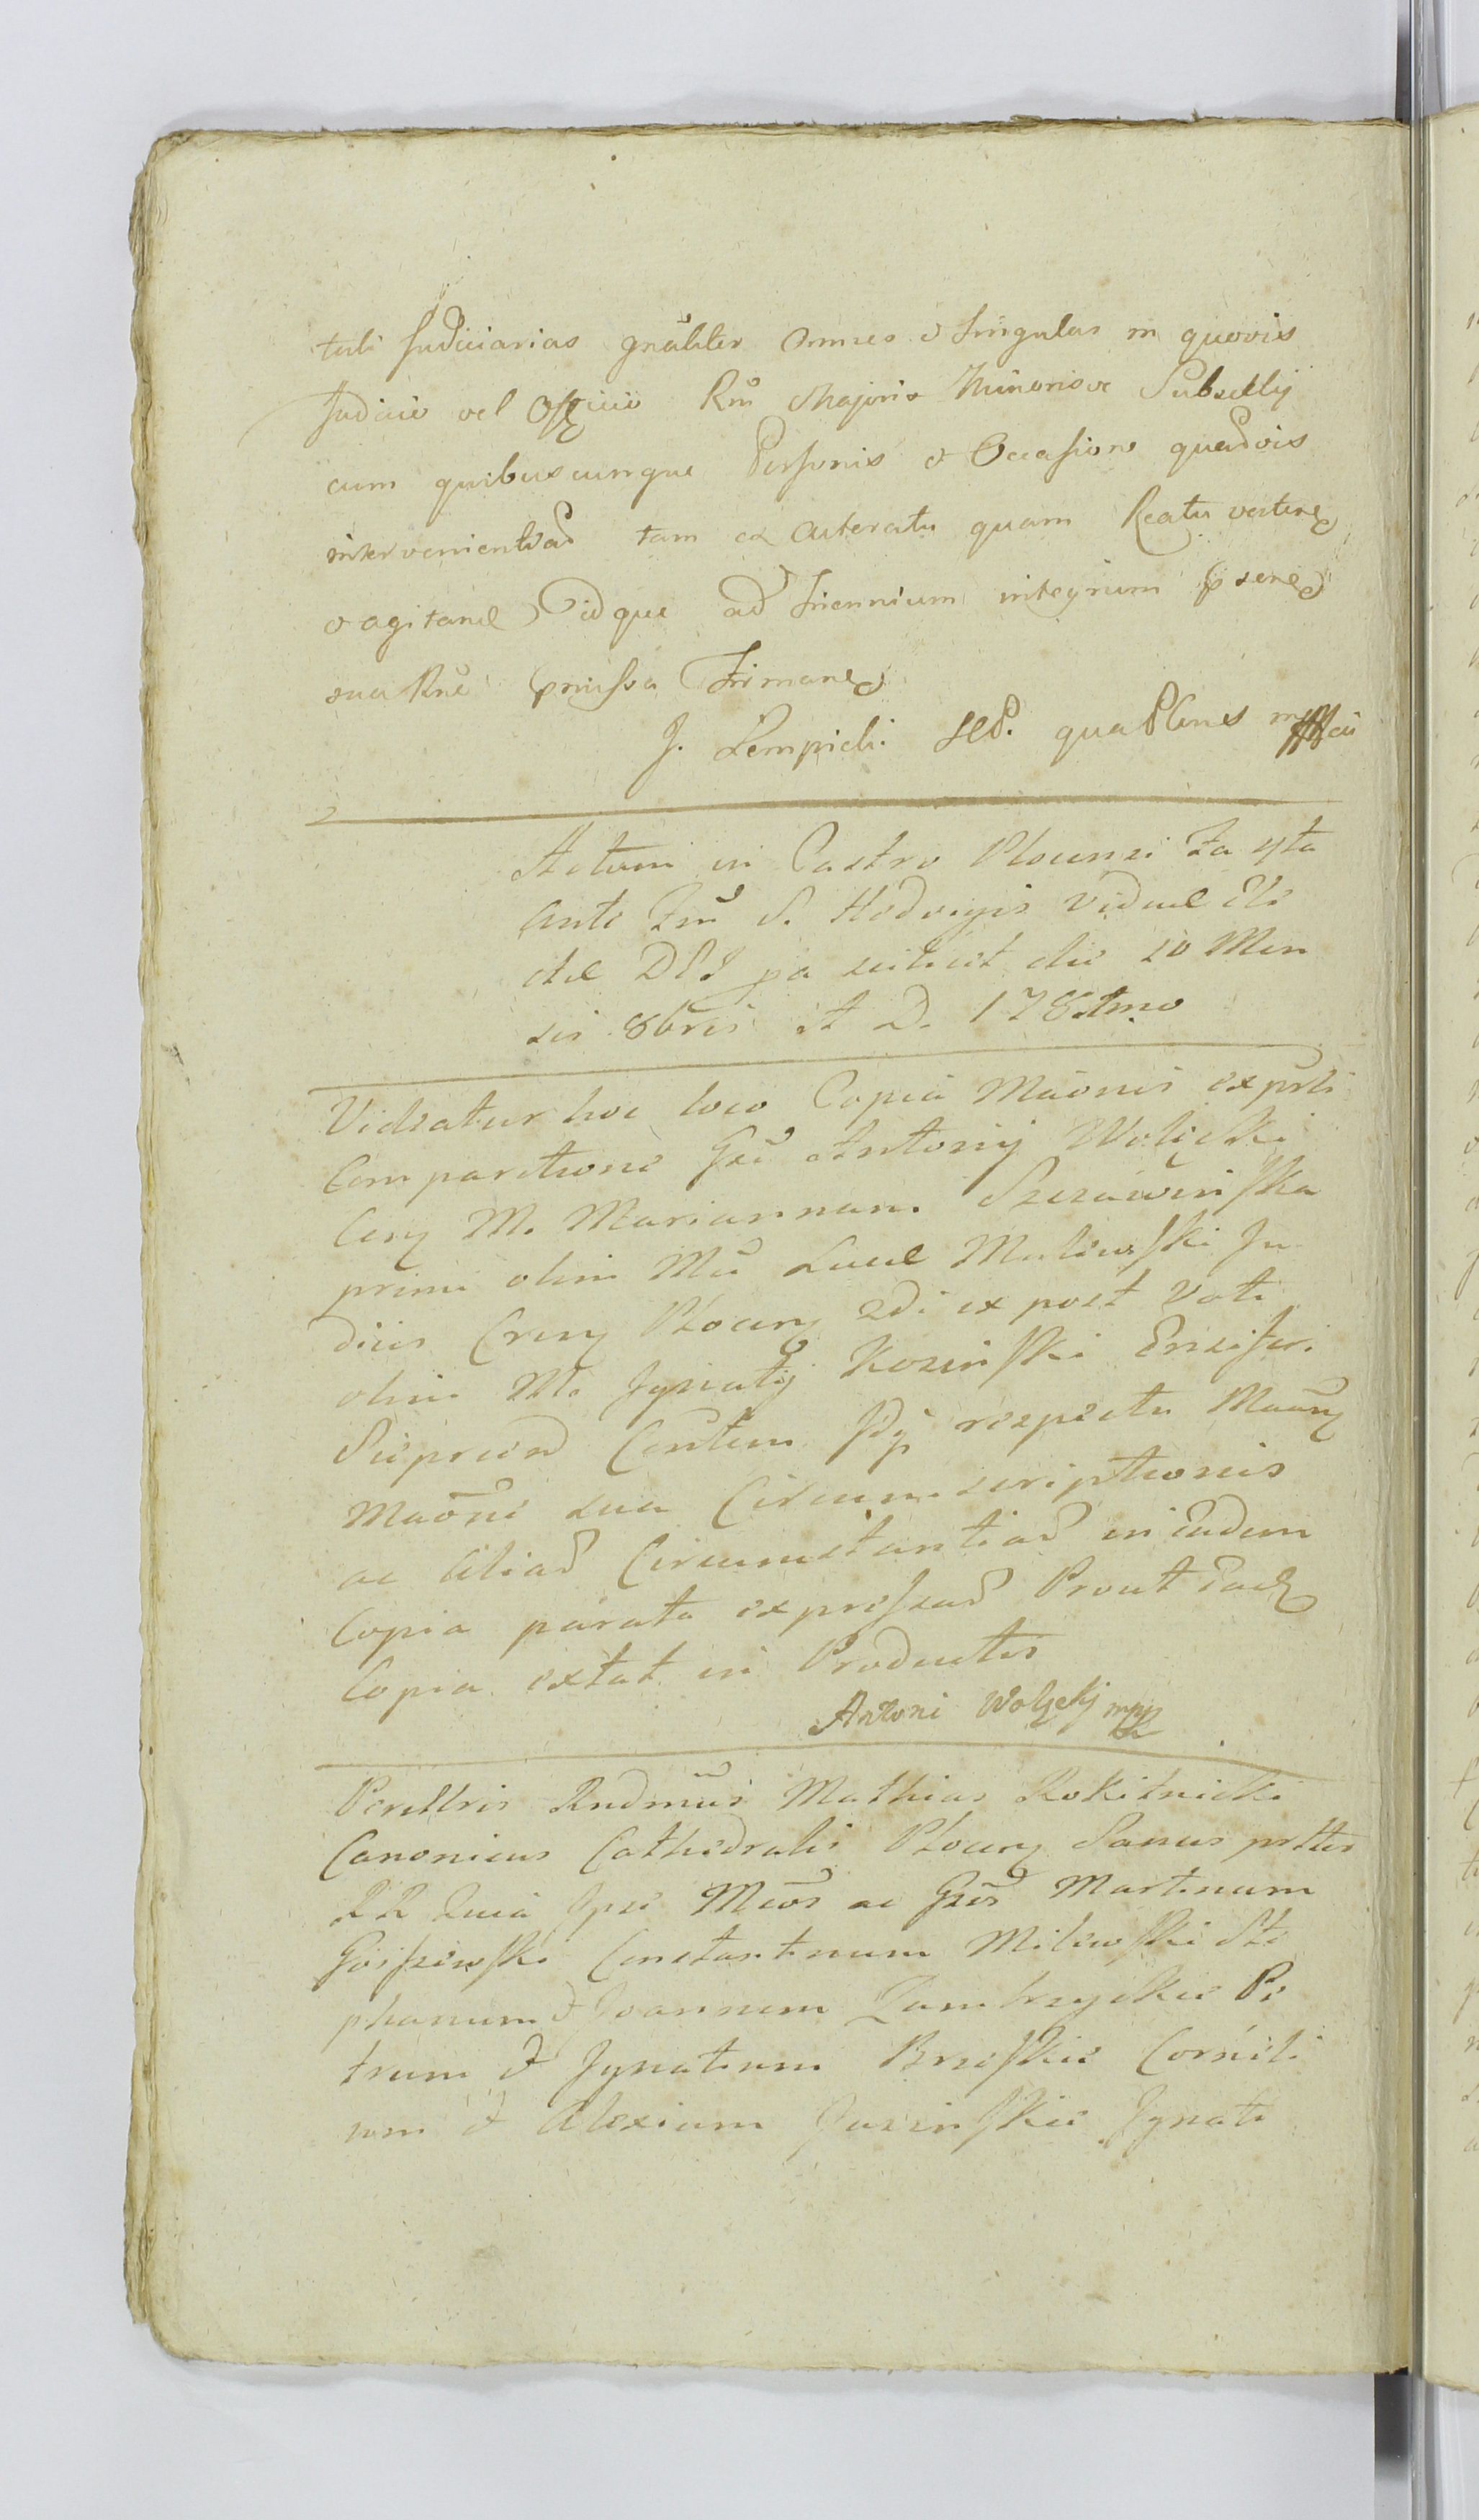 tuli Judiciarias gnaliter Omnes & Singulas in quovis
Judicio vel Officio Rni Majoris Minorisve Subsellij
cum quibuscunque Personis & Occasione quavis
intervenientad tam ex Actoratu quam Reatu verten
& agitand idque ad Triennium integrum
sua Rne pmissa Firmane
J. Łempicki
Actum in Castro Plocensi Fa 4ta
ante Fm S. Hedvigis Viduæ Ele
ctæ DPS pa scilicet die 10 Men
sis 8bris A D. 178
Videatur hoc loco Copia Maonis ex psli
Comparitione Gsi Antonij Wolicki
Cery M. Mariannam Szczawinska
primi olim Mci Lucæ Mulewski Ju
dicis Creny Plocen 2di ex post Voti
olim M. Ignatij Kozinski Ensiferi
Sieprcen Contem respectu
Maone sua Circumscriptionis
ac Aliad Circumstantiad in Eadem
Copia parata expressad Prout Eadz
Copia extat in Productis
Antoni Wolęckj mpp
Perilltris Rndmus Mathias Rokitnicki
Canonicus Cathedralis Plocen Sanus
RR Quia Ipse Mcos ac Gsos Martinum
Goiszewski Constantinum Milewski Ste
phanum & Joannem Zambrzyckie Pe
trum & Ignatium Brzeskie Corneli
um & Alexium Juzinskie Ignati